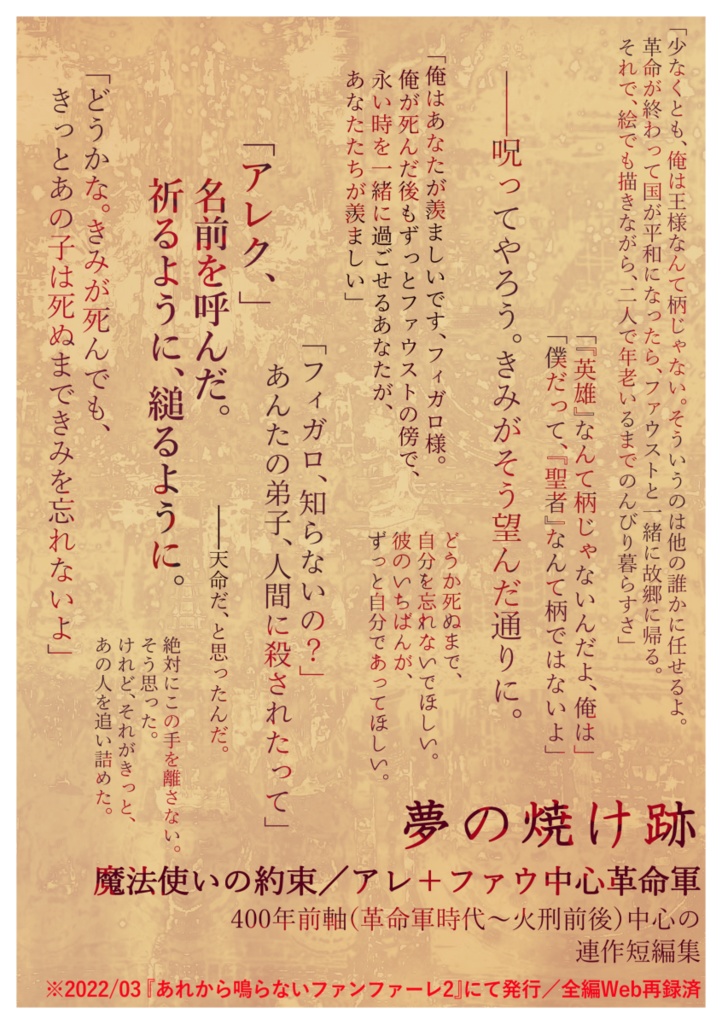 「少なくとも、俺は王様なんて柄じゃない。そういうのは他の誰かに任せるよ。
革命が終わって国が平和になったら、ファウストと一緒に故郷に帰る。
それで、絵でも描きながら、二人で年老いるまでのんびり暮らすさ」
「『英雄』なんて柄じゃないんだよ、俺は」
「僕だって、『聖者』なんて柄ではないよ」
――呪ってやろう。きみがそう望んだ通りに。
「俺はあなたが羨ましいです、フィガロ様。
俺が死んだ後もずっとファウストの傍で、
永い時を一緒に過ごせるあなたが、
あなたたちが羨ましい」
どうか死ぬまで、
自分を忘れないでほしい。
彼のいちばんが、
ずっと自分であってほしい。
「フィガロ、知らないの？」
あんたの弟子、人間に殺されたって」
「アレク、」
名前を呼んだ。
祈るように、縋るように。
――天命だ、と思ったんだ。
絶対にこの手を離さない。
そう思った。
けれど、それがきっと、
あの人を追い詰めた。
「どうかな。きみが死んでも、
きっとあの子は死ぬまできみを忘れないよ」
夢の焼け跡
魔法使いの約束／アレ＋ファウ中心革命軍
400年前軸(革命軍時代～火刑前後)中心の
連作短編集
※2022/03『あれから鳴らないファンファーレ2』にて発行／全編Web再録済